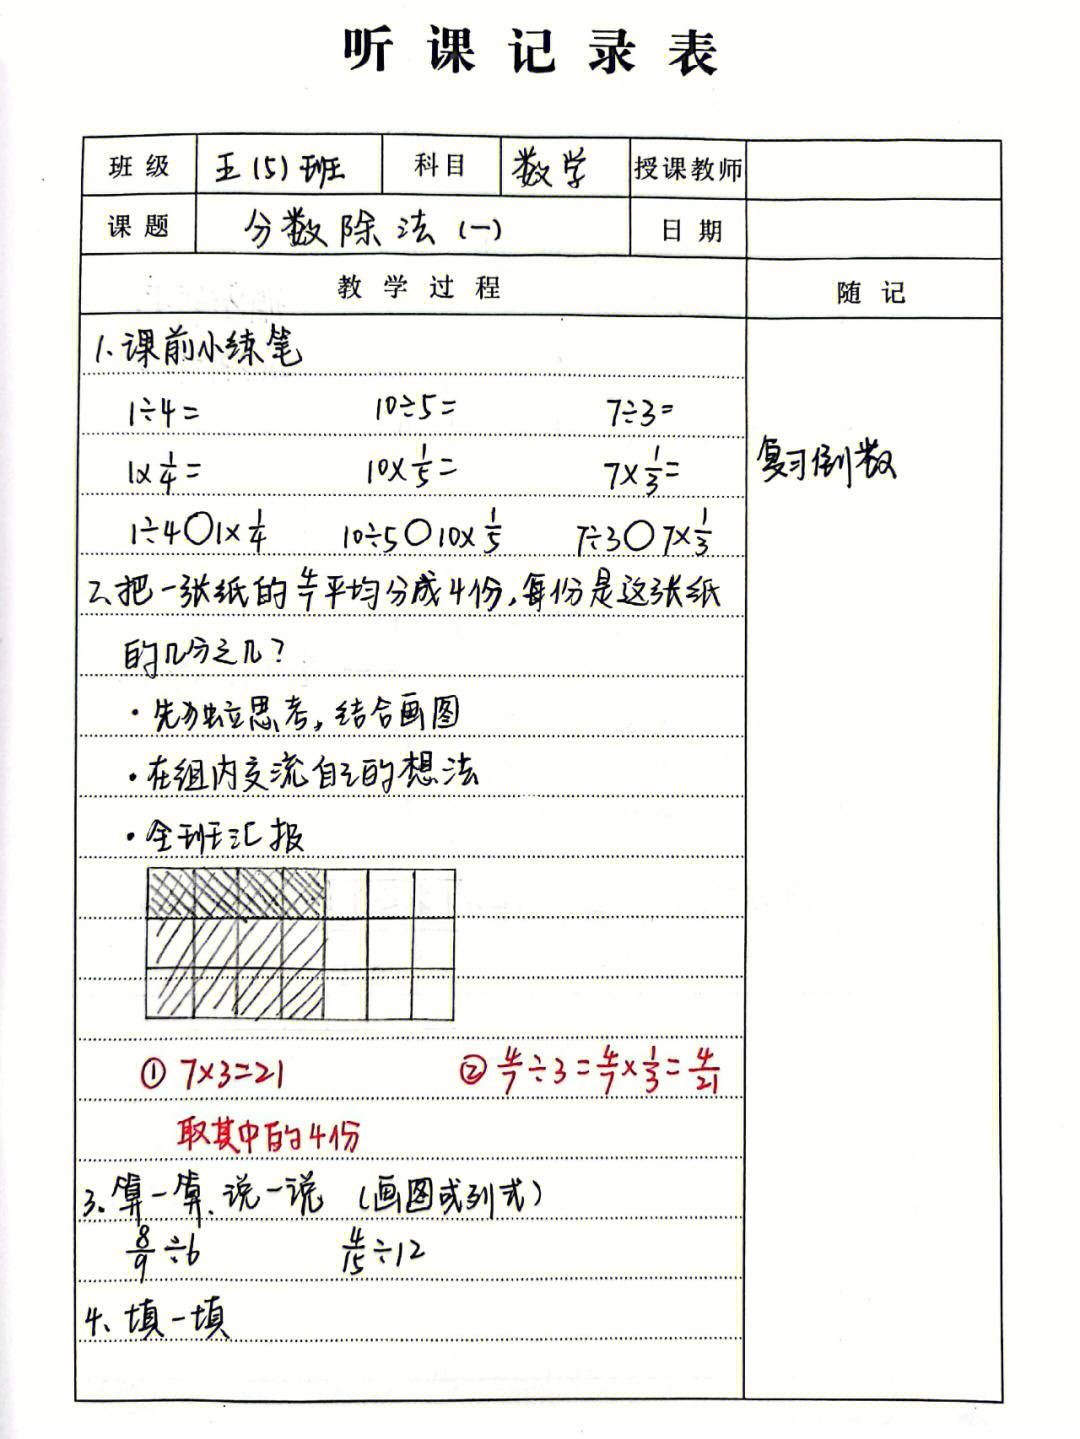 听课记录表
班级 五(5)班 科目 数学 授课教师
课题 分数除法(一) 日期
教学过程 随记
1.课前小练笔
1÷4= 10÷5= 7÷3=
1×1/4= 10×1/5= 7×1/3=
复习倒数
1÷4○1×1/4 10÷5○10×1/5 7÷3○7×1/3
2.把一张纸的4/7平均分成4份,每份是这张纸
的几分之几?
·先独立思考,结合画图
·在组内交流自己的想法
·全班汇报
① 7×3=21 ② 4/7÷3=4/7×1/3=4/21
取其中的4份
3.算一算、说一说 (画图或列式)
8/9÷6 4/15÷12
4、填一填